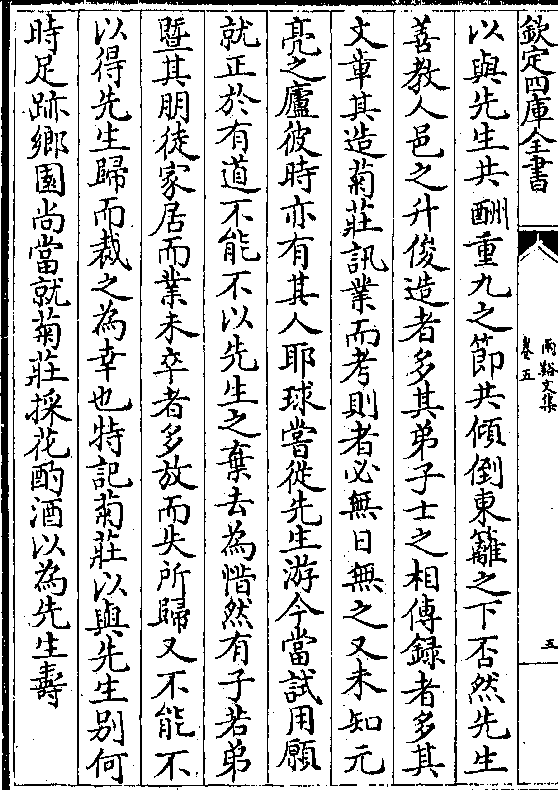 欽定四庫全書
兩谿文集
卷五
五
以與先生共酬重九之節共傾倒東籬之下否然先生
善教人邑之升俊造者多其弟子士之相傳録者多其
文章其造菊莊訊業而考則者必無日無之又未知元
亮之廬彼時亦有其人耶球嘗從先生游今當試用願
就正於有道不能不以先生之棄去為惜然有子若弟
暨其朋徒家居而業未卒者多放而失所歸又不能不
以得先生歸而裁之為幸也特記菊莊以與先生别何
時足跡鄉園尚當就菊莊採花酌酒以為先生壽